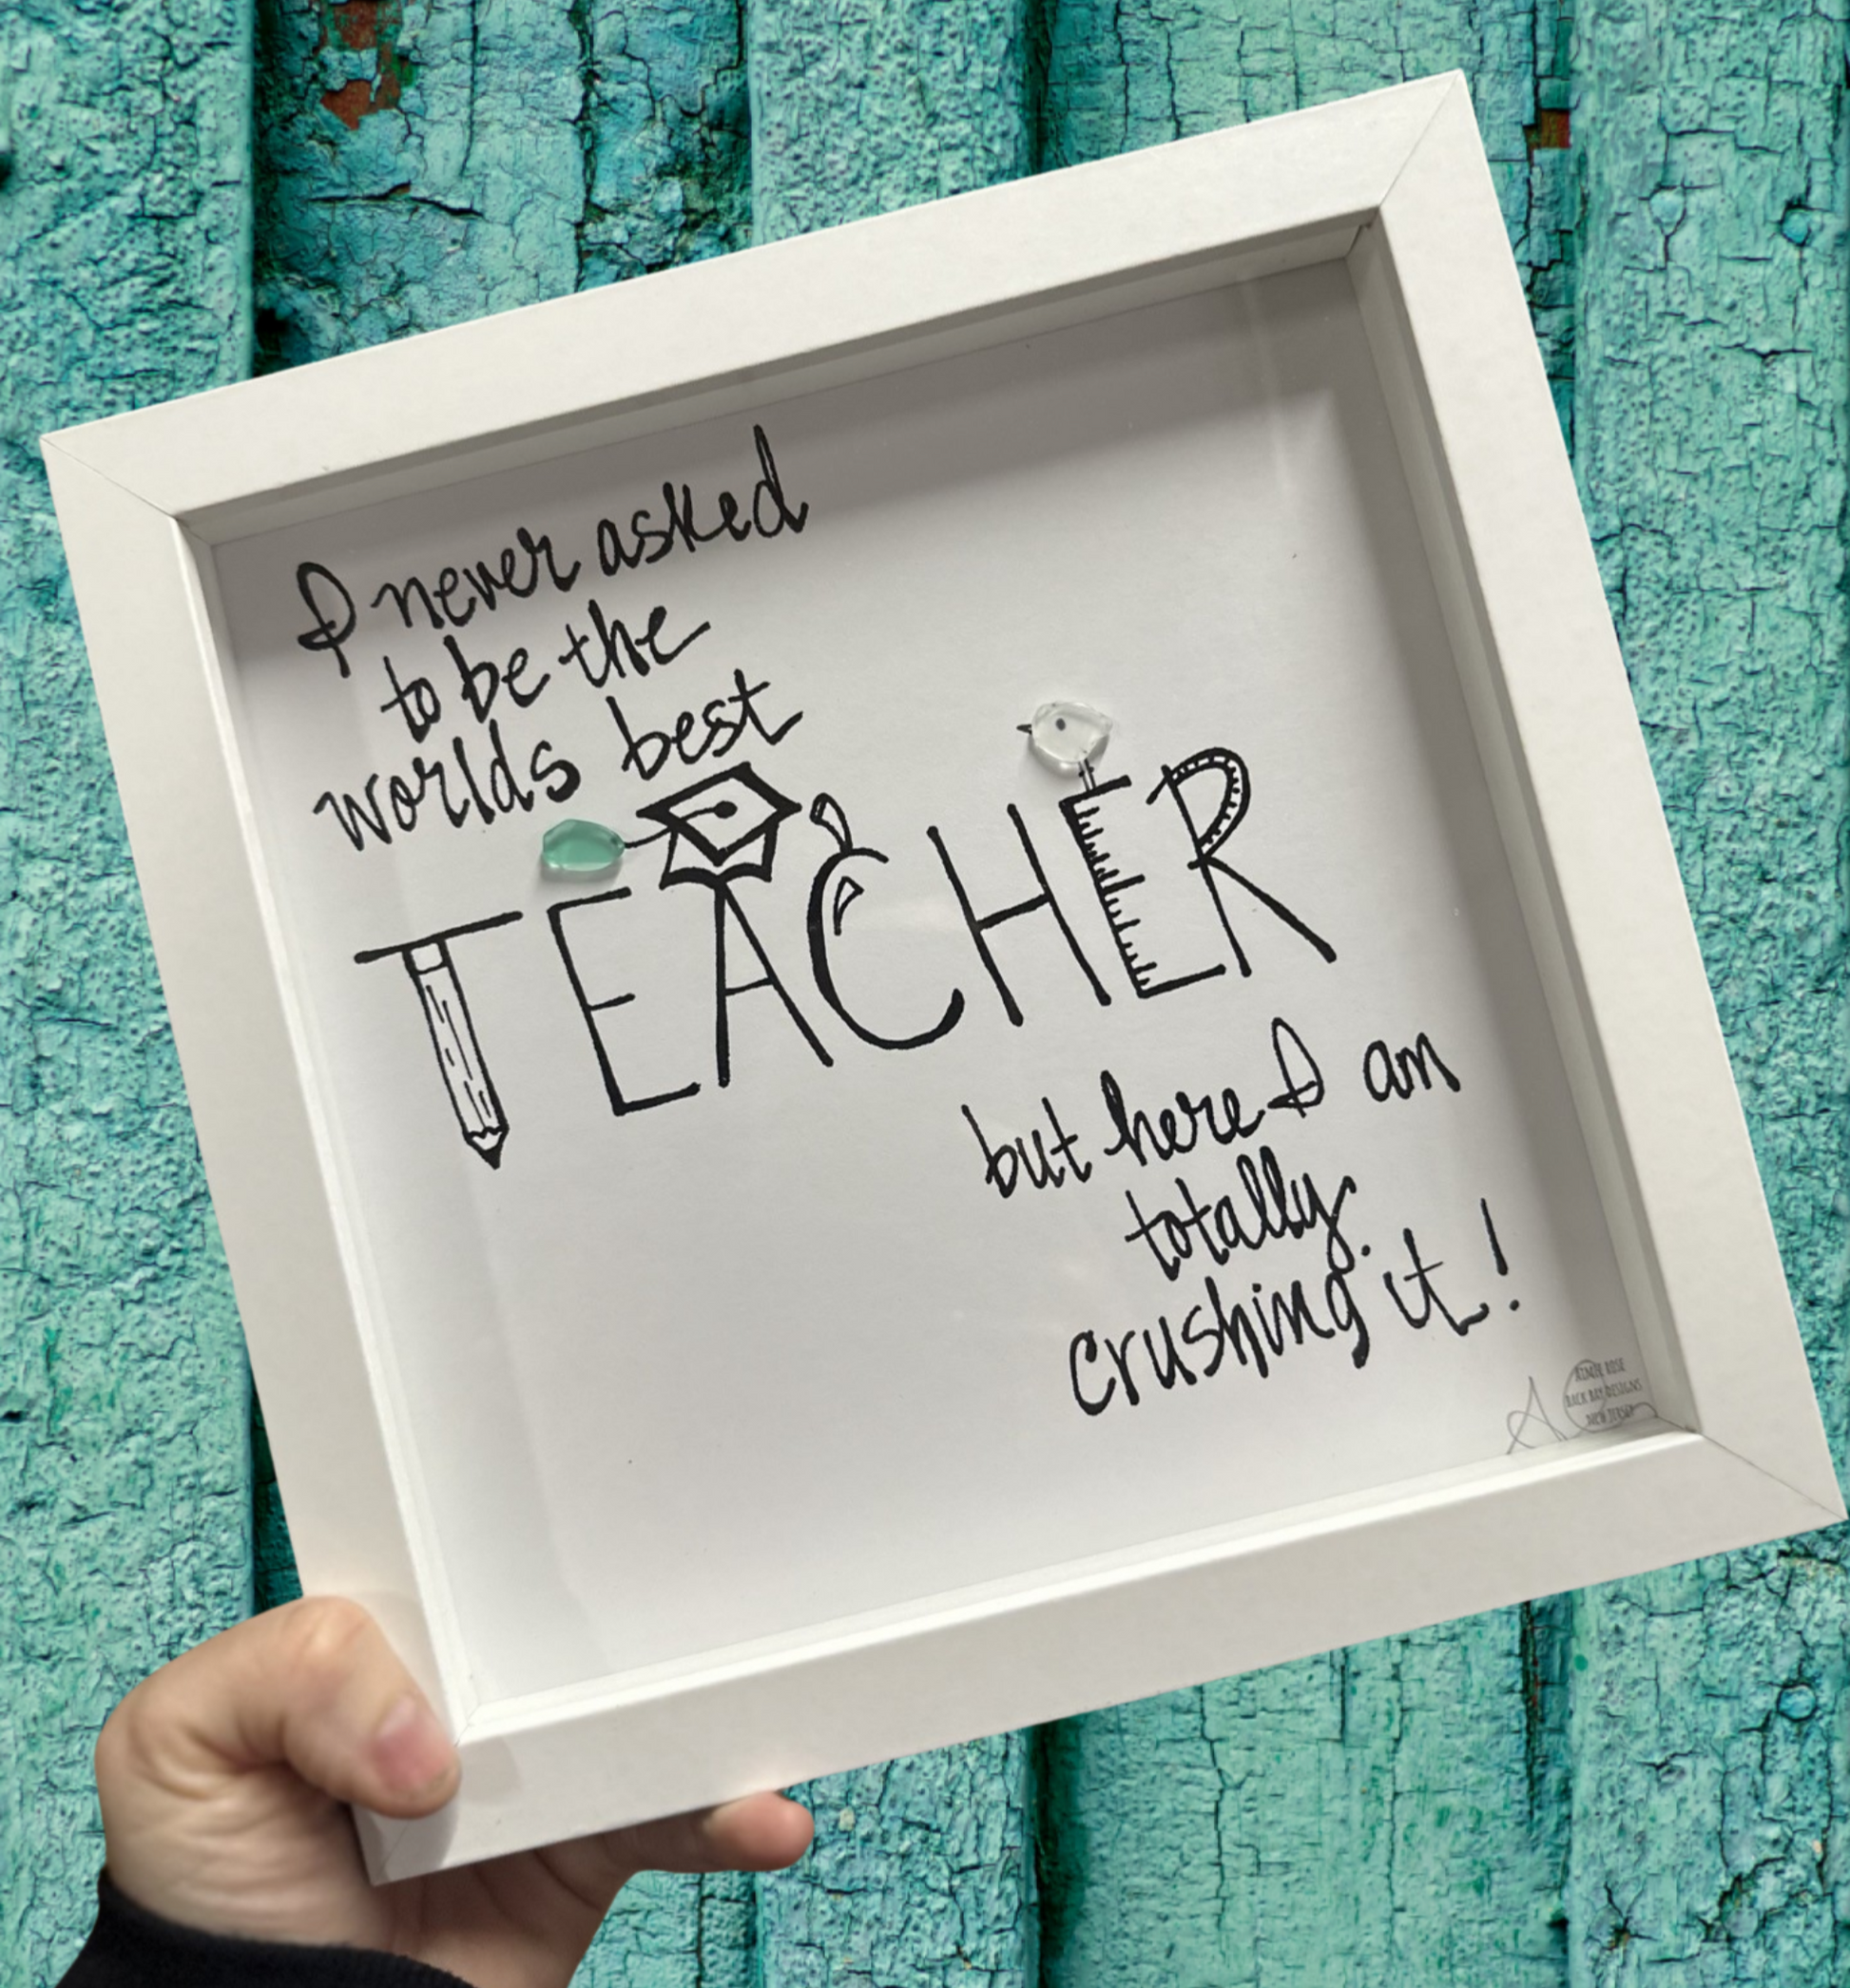 I never asked
to be the
worlds best
TEACHER
but here I am
totally
crushing it!
AIMEE ROSE
BACK BAY DESIGNS
NEW JERSEY